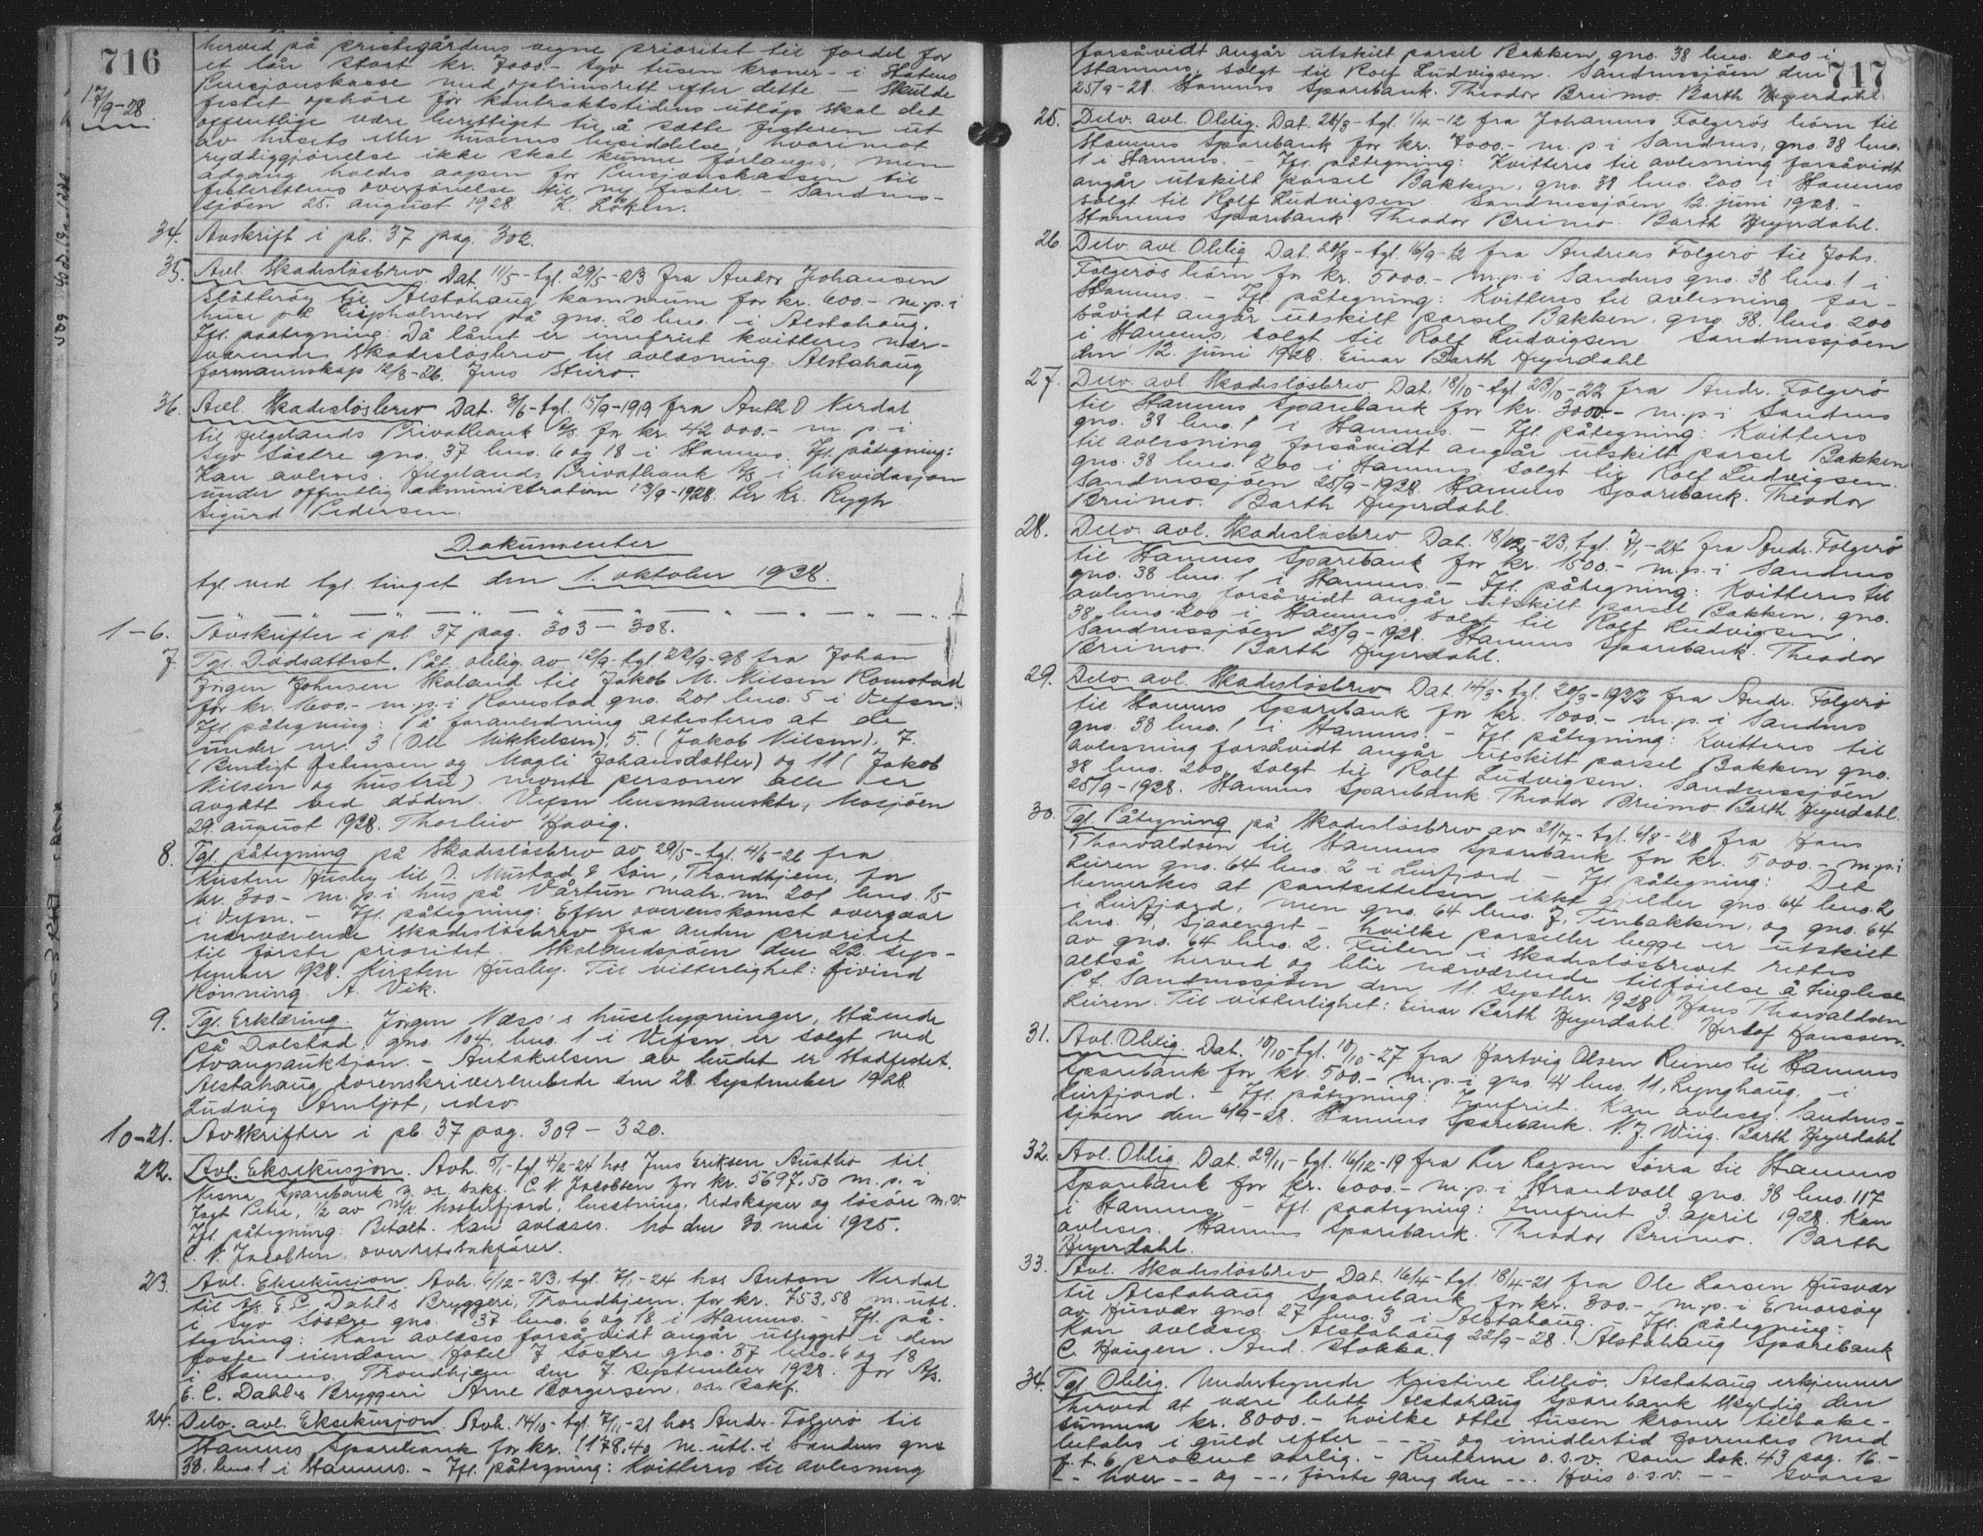 716
17/9-28
herved på prestegårdens vegne prioritet til fordel for
et lån stort kr. 7000.- syv tusen kroner - i Statens
Pensjonskasse med optrinsrett efter dette - Skulde
festet ophøre før kontraktstidens utløp skal det
offentlige være berettiget til å sætte festeren ut
av husets eller husenes besiddelse, hvorimot
ryddiggjørelse ikke skal kunne forlanges, men
adgang holdes aapen for Pensjonskassen til
festerettens overførelse til ny fester. - Sandnes-
sjøen 25. august 1928 K. Løken.
34. Avskrift i pb. 37 pag. 302.
35. Avl. Skadesløsbrev Dat. 11/5 - tgl. 29/5-23 fra Andor Johansen
til Alstahaug kommune for kr. 600.- m.p. i
huse på på gno. 20 bno. 1 i Alstahaug.
Ifl. paategning: Då lånet er innfriet kvitteres nær-
værende Skadesløsbrev til avlæsning. Alstahaug
formannskap 12/8-26. Jens Sturo.
36. Avl. Skadesløsbrev Dat. 3/6 - tgl. 15/9-1919 fra Anth O Nerdal
til Helgelands Privatbank A/S for kr. 42 000.- m. p. i
Syv Søstre gno. 37 bno. 6 og 18 i Stamnes. Ifl. påtegning:
Kan avleses. Helgelands Privatbank A/S i likvidasjon
under offentlig administration 13/9-1928. Per Kr. Rygh
Sigurd Pedersen.
Dokumenter
tgl. ved tgl. tinget den 1. oktober 1928.
1-6. Avskrifter i pb. 37 pag. 303 - 308.
7. Tgl. Dødsattest. Påt. oblig. av 12/9 - tgl. 22/9-98 fra Johan
Jørgen Johnsen Skoland til Jakob M. Nilsen Ramstad
for kr. 1600.- m.p. i Ramstad gno. 201 bno. 5 i Vefsn.
Ifl. påtegning: På foranledning attesteres at de
under nr. 3 (Ole Mikkelsen), 5. (Jakob Nilsen), 7.
(Bendigt Estensen og Magli Johansdatter) og 11 (Jakob
Nilsen og hustru) nevnte personer alle er
avgått ved døden. Vefsn lensmannsktr., Mosjøen
29. august 1928. Thorleiv Havig.
8. Tgl. påtegning på Skadesløsbrev av 29/5 - tgl. 4/6-26 fra
Kirsten Husby til O. Mustad & Søn, Trondhjem, for
kr. 300.- m.p. i hus på Vårtun matr. nr. 201 bno. 15
i Vefsn. - Ifl. påtegning: Efter overenskomst overgaar
nærværende skadesløsbrev fra anden prioritet
til første prioritet. Skolandsjøen den 22. sep-
tember 1928. Kirsten Husby. Til vitterlighet: Eivind
Rønning. A. Vik.
9. Tgl. Erklæring Jørgen Næss's husebygninger, stående
på Dolstad, gno. 104, bno. 1 i Vefsn, er solgt ved
tvangsauktion. - Antakelsen av budet er stadfestet.
Alstahaug sorenskriverembede den 28. september 1928.
Ludvig Arntjot, edsv.
10-21. Avskrifter i pb. 37 pag. 309 - 320.
22. Avl. Eksekusjon. Avh. 5/1 - tgl. 4/2-24 hos Jens Eriksen Austbø til
Nesna Sparebank v. or. sakf. C. N. Jacobsen for kr. 5697,50 m. p. i
Jagt Petra, 1/2 av M/K Mosterfjord, husstning, redskaper og løsøre m.v.
Ifl. påtegning: Betalt. Kan avlæses. Mo den 30. mai 1925.
C. N. Jacobsen, overretssakfører.
23. Avl. Eksekusjon Avh. 6/12-23, tgl. 7/1-24 hos Anton Nerdal
til A/S. E. C. Dahls Bryggeri, Trondhjem, for kr. 753,58 m. utl.
i Syv Søstre gno. 37 bno. 6 og 18 i Stamnes. - Ifl. på-
tegning: Kan avlæses forsåvidt angår utlegget i den
faste eiendom Hotel 7 Søstre gno. 37 bno. 6 og 18
i Stamnes. Trondhjem den 7. september 1928. For A/S.
E. C. Dahls Bryggeri Arne Borgersen, or. sakf.
24. Delv. avl. Eksekusjon. Avh. 14/10 - tgl. 7/11-21 hos Andr. Folgerø til
Stamnes Sparebank for kr. 1178,40 m. utl. i Sandnes gno
38. bno. 1 i Stamnes. - Ifl. påtegning: Kvitteres til avlesning
717
forsåvidt angår utskilt parsel Bakken gno. 38 bno. 200 i
Stamnes, solgt til Rolf Ludvigsen. Sandnessjøen den
25/9-28. Stamnes Sparebank. Theodor Brumo. Barth Heyerdahl
25. Delv. avl. Oblig. Dat. 28/3 - tgl. 1/4-12 fra Johannes Folgerøs børn til
Stamnes Sparebank for kr. 7000.- m. p. i Sandnes, gno. 38 bno.
1 i Stamnes. - Ifl. påtegning: Kvitteres til avlesning forsåvidt
angår utskilt parsel Bakken, gno. 38 bno. 200 i Stamnes
solgt til Rolf Ludvigsen Sandnessjøen 12. juni 1928. -
Stamnes Sparebank Theodor Brumo. Barth Heyerdahl.
26 Delv. avl. Oblig Dat. 28/8 - tgl. 16/9-12 fra Andreas Folgerø til Johs.
Folgerøs børn for kr. 5000.- m.p. i Sandnes gno. 38 bno. 1 i
Stamnes. - Ifl. påtegning: Kvitteres til avlesning for-
såvidt angår utskilt parsel Bakken, gno. 38. bno. 200
i Stamnes, solgt til Rolf Ludvigsen. Sandnessjøen
den 12. juni 1928. Einar Barth Heyerdahl
27. Delv. avl. Skadesløsbrev Dat. 18/10 - tgl. 23/10-22 fra Andr. Folgerø
til Stamnes Sparebank for kr. 3000.- m.p. i Sandnes
gno. 38 bno. 1 i Stamnes. - Ifl. påtegning: Kvitteres
til avlesning forsåvidt angår utskilt parsel Bakken
gno. 38 bno. 200 i Stamnes solgt til Rolf Ludvigsen.
Sandnessjøen 25/9-1928. Stamnes Sparebank. Theodor
Brumo. Barth Heyerdahl.
28. Delv. avl. Skadesløsbrev Dat. 18/12-23, tgl. 7/1-24 fra Andr. Folgerø
til Stamnes Sparebank for kr. 1500.- m.p. i Sandnes
gno. 38 bno. 1 i Stamnes. - Ifl. påtegning: Kvitteres til
avlesning forsåvidt angår utskilt parsel Bakken, gno.
38, bno. 200 i Stamnes, solgt til Rolf Ludvigsen.
Sandnessjøen 25/9-1928. Stamnes Sparebank. Theodor
Brumo. Barth Heyerdahl.
29. Delv. avl. Skadesløsbrev Dat. 14/3 - tgl. 20/3-1922 fra Andr. Folgerø
til Stamnes Sparebank for kr. 1000.- m. p. i Sandnes
gno. 38 bno. 1 i Stamnes. - Ifl. påtegning: Kvitteres til
avlesning forsåvidt angår utskilt parsel Bakken gno.
38 bno. 200, solgt til Rolf Ludvigsen. Sandnessjøen
25/9-1928. Stamnes Sparebank. Theodor Brumo. Barth Heyerdahl.
30. Tgl. Påtegning på Skadesløsbrev av 21/7 - tgl. 6/8-28 fra Hans
Thorvaldsen til Stamnes Sparebank for kr. 5000.- m.p. i
Leiren gno. 64 bno. 2 i Leirfjord - Ifl. påtegning: Det
bemerkes at pantsettelsen ikke gjelder gno. 64 bno. 2
i Leirfjord, men gno. 64 bno. 7, Tenbakken, og gno. 64
bno. 9, Sjøvenget - hvilke parseller begge er utskilt
av gno. 64 bno. 2. Feilen i Skadesløsbrevet rettes
altså herved og blir nærværende tilføielse å tinglese
p. t. Sandnessjøen den 11. septbr. 1928 Hans Thorvaldsen
Leiren. Til vitterlighet: Einar Barth Heyerdahl. Herlof Hanssen.
31. Avl. Oblig. Dat. 10/10 - tgl. 19/10-27 fra Hartvig Olsen Reines til Stamnes
Sparebank for kr. 500.- m.p. i gno. 41 bno. 11, Lynghaug, i
Leirfjord. - Ifl. påtegning: Innfriet. Kan avleses. Sandnes-
sjøen den 6/9-28. Stamnes Sparebank. N. J. Wiig. Barth Heyerdahl
32. Avl. Oblig. Dat. 29/11 - tgl. 16/12-19 fra Per Larsen Sørra til Stamnes
Sparebank for kr. 6000.- m.p. i Strandvoll gno. 38 bno. 117
i Stamnes - Ifl. paategning: Innfriet 3. april 1928. Kan
avleses. Stamnes Sparebank. Theodor Brumo. Barth
Heyerdahl.
33. Avl. Skadesløsbrev Dat. 16/4 - tgl. 18/4-21 fra Ole Larsen Husvær
til Alstahaug Sparebank for kr. 300.- m.p. i Emarsøy
av Husvær gno. 27 bno. 3 i Alstahaug. Ifl. påtegning:
Kan avlæses. Alstahaug 22/9-28. Alstahaug Sparebank
C. Haugen. And. Stokka.
34. Tgl. Oblig. Undertegnede Kristine Lillrø. Alstahaug erkjenner
herved at være blitt Alstahaug Sparebank skyldig den
summen kr. 8000.- hvilke otte tusen kroner tilbake-
betales i guld efter - - - og imidlertid forrentes med
f. t. 6 procent aarlig. - Renterne o.s.v. som dok. 43 pag. 16. -
- - hver - - og - - , første gang den - - - Hvis o.s.v. - - Svares